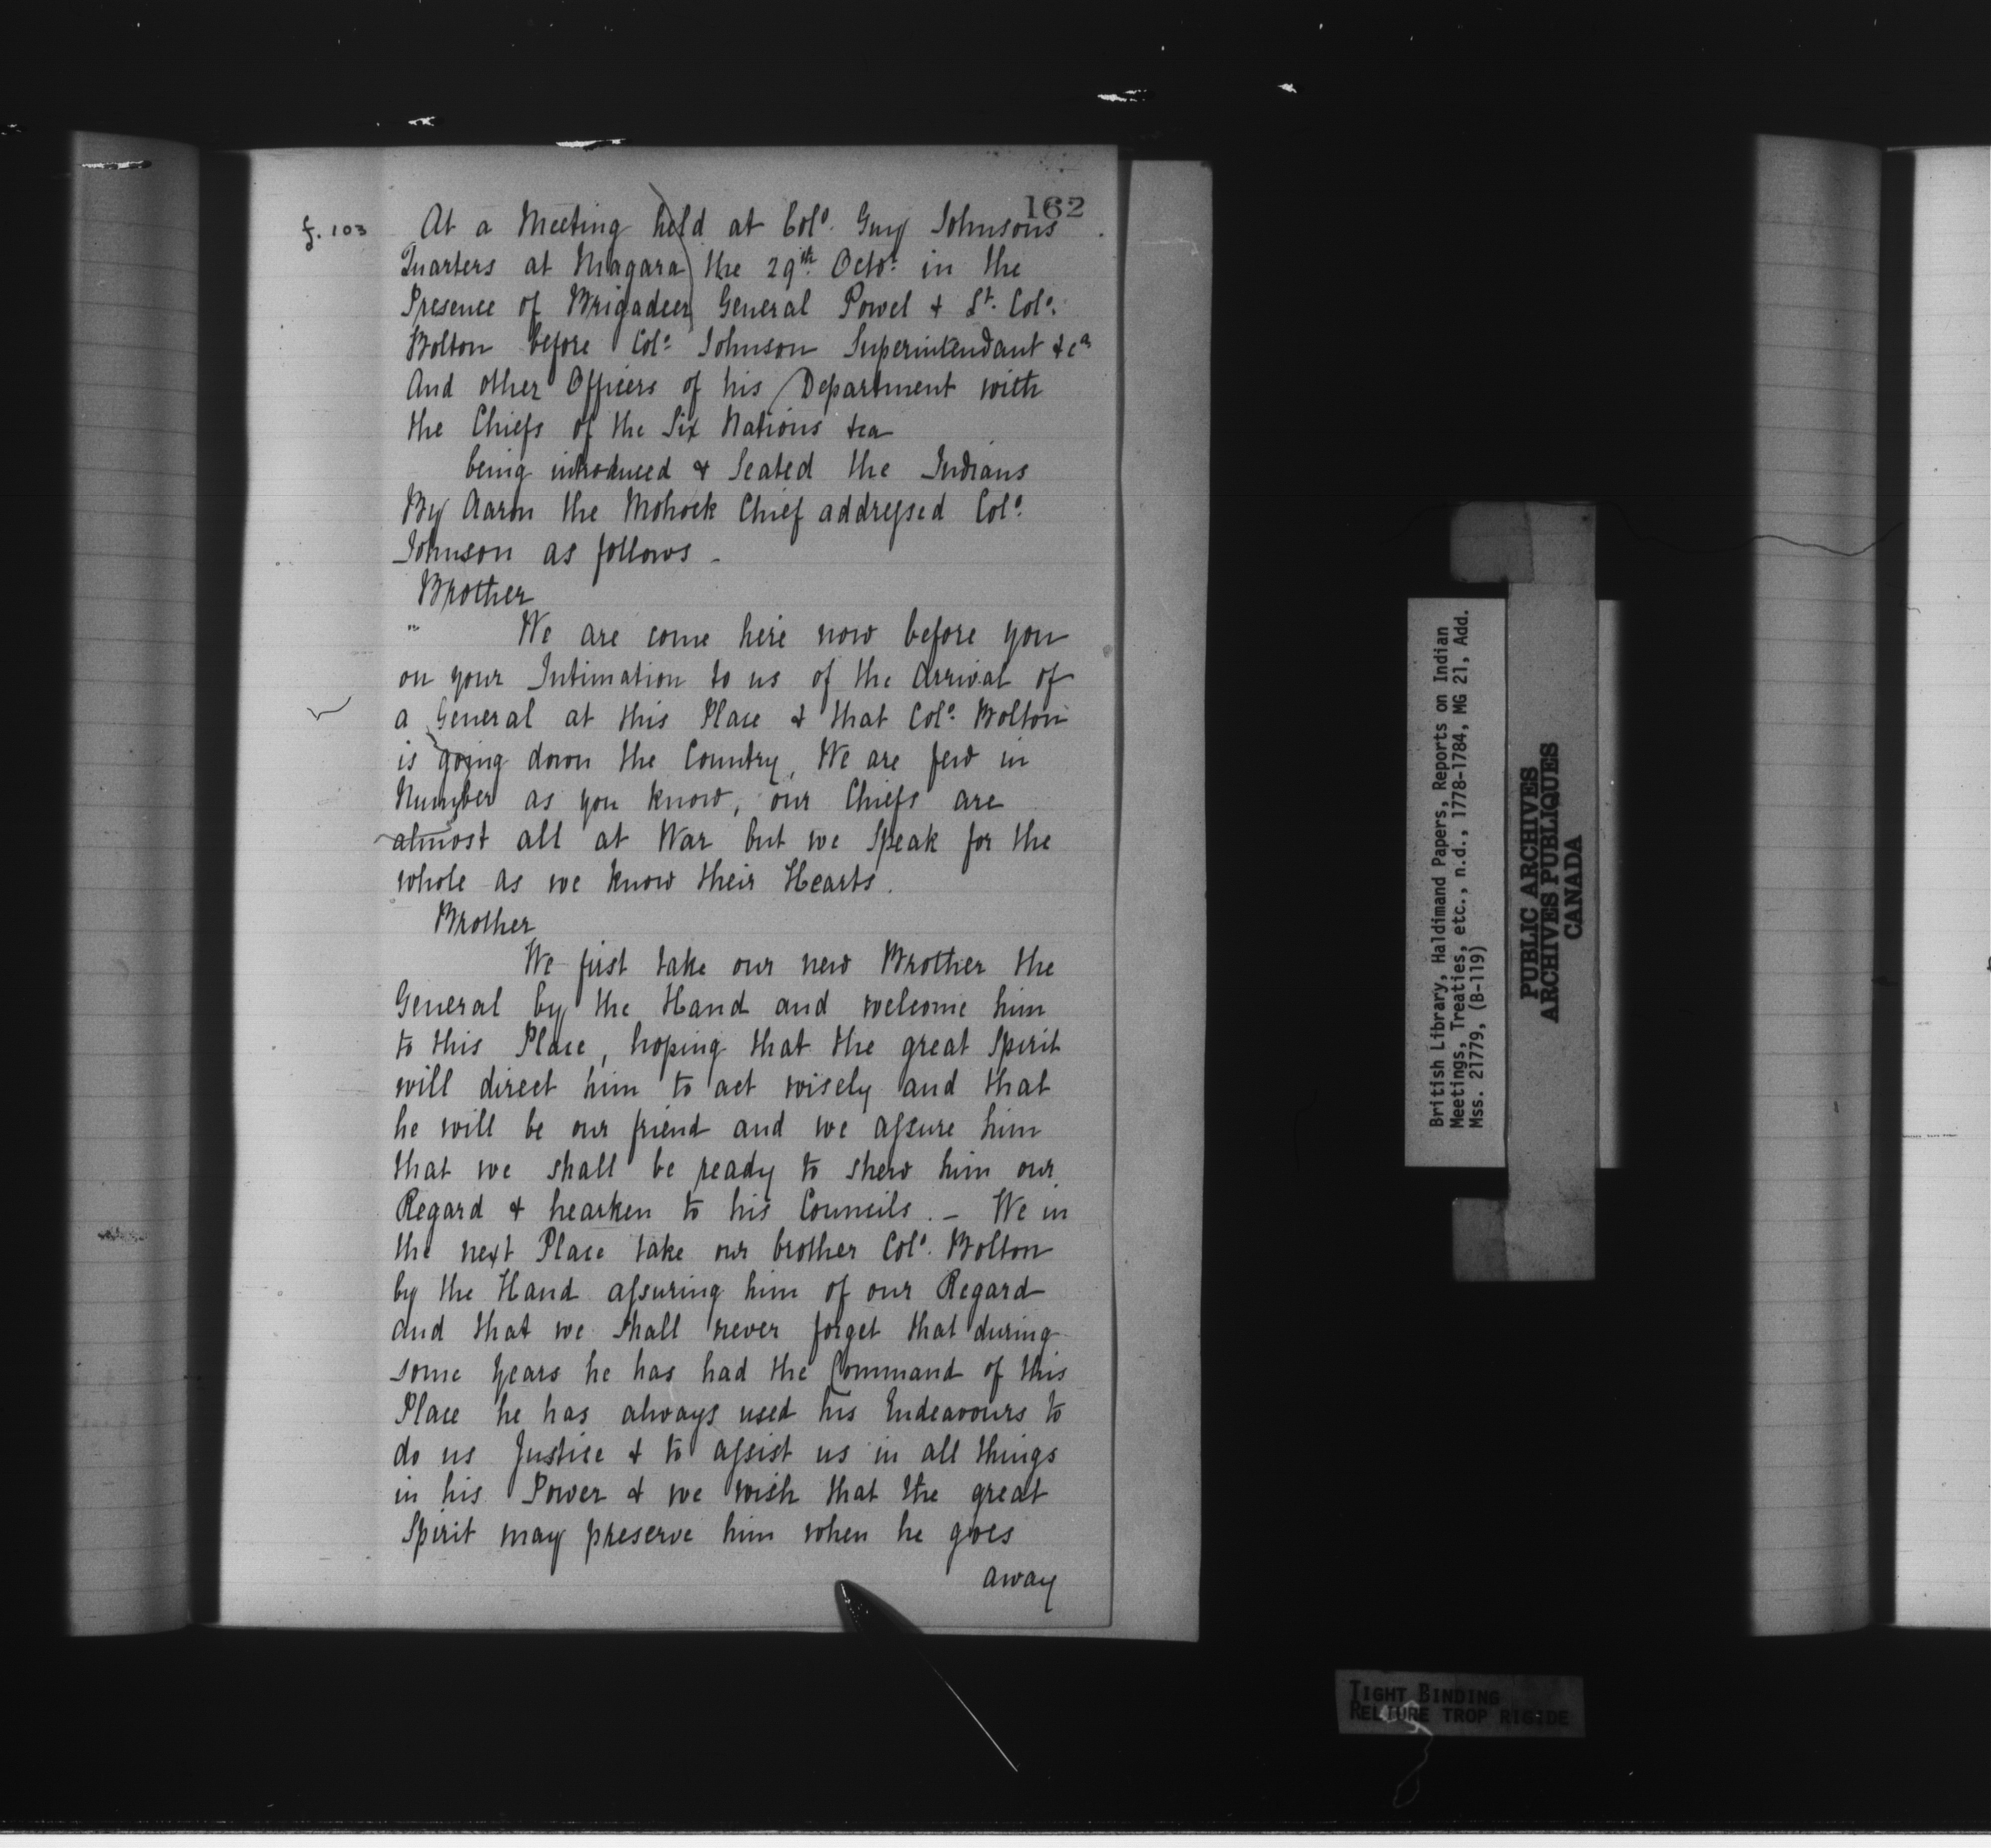 162
f. 103
At a Meeting held at Colo. Guy Johnsons
Quarters at Niagara the 29th. Octo: in the
Presence of Brigadeer General Powel & Lt. Colo.
Bolton before Colo: Johnson Superintendant &ca
And other Officers of his Department with
the Chiefs of the Six Nations &ca
being introduced & Seated the Indians
By Aaron the Mohock Chief addressed Colo.
Johnson as follows -
Brother
" We are come here now before you
on your Intimation to us of the Arrival of
a General at this Place & that Colo: Bolton
is going down the Country, We are few in
Number as you know, our Chiefs are
almost all at War but we Speak for the
whole as we know their Hearts.
Brother
We first take our new Brother the
General by the Hand and welcome him
to this Place, hoping that the great Spirit
will direct him to act wisely and that
he will be our friend and we assure him
that we shall be ready to shew him our
Regard & hearken to his Councils. - We in
the next Place take our brother Colo. Bolton
by the Hand assuring him of our Regard
and that we shall never forget that during
some Years he has had the Command of this
Place he has always used his Endeavours to
do us Justice & to assist us in all things
in his Power & we wish that the great
Spirit may preserve him when he goes
away
British Library, Haldimand Papers, Reports on Indian
Meetings, Treaties, etc., n.d., 1778-1784, MG 21, Add.
Mss. 21779, (B-119)
PUBLIC ARCHIVES
ARCHIVES PUBLIQUES
CANADA
TIGHT BINDING
RELIURE TROP RIGIDE